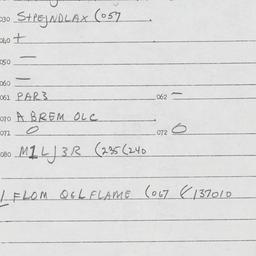 030 StPEJNDLAX (057 .
040 +
050 —
060 —
061 PAR3 062 —
070 A BREM OLC .
071 O 072 O
080 M1LJ3R (235(240
1 FLOM Q6L FLAME (067 ( 137010